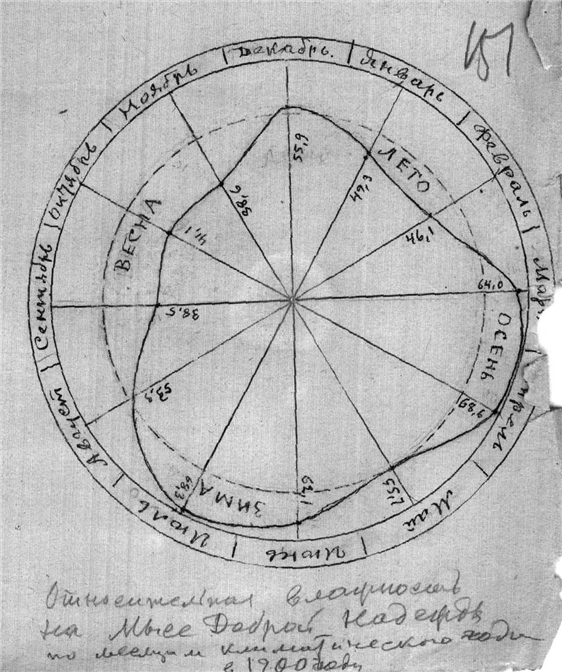 151
Декабрь.
Январь
Февраль
Мар
прель
Май
Июнь
Июль
Август
Сентябрь
Октябрь
Ноябрь
ЛЕТО
ОСЕНЬ
ЗИМА
ВЕСНА
55,9
49,3
46,1
64,0
68,6
55,7
62,1
68,3
53,3
38,5
41,1
38,6
Относительная влажность
на Мысе Доброй Надежды
по месяцам климатического года
в 1900 году